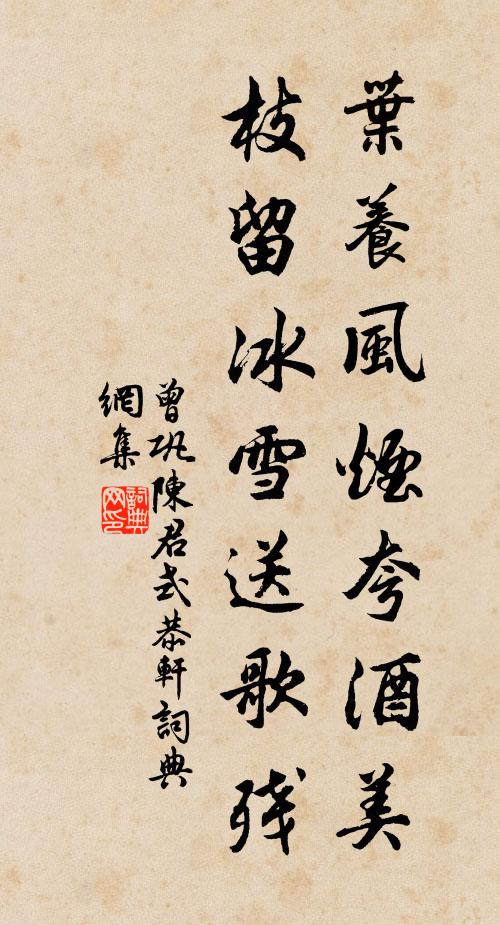 葉養風煙夸酒美
枝留冰雪送歌残
曾巩陳君式恭軒詞典
網集
詞典
网印